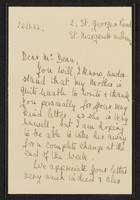 2, St. Georges Road
St. Margarets
Dear Mr Dean,
You will I know under-
stand that my Mother is
quite unable to write & thank
you personally for your very
kind letter, as she is very
unwell, but I am hoping
to be able to take her away
for a complete change at the
end of the week.
We appreciate your letter
very much indeed & also